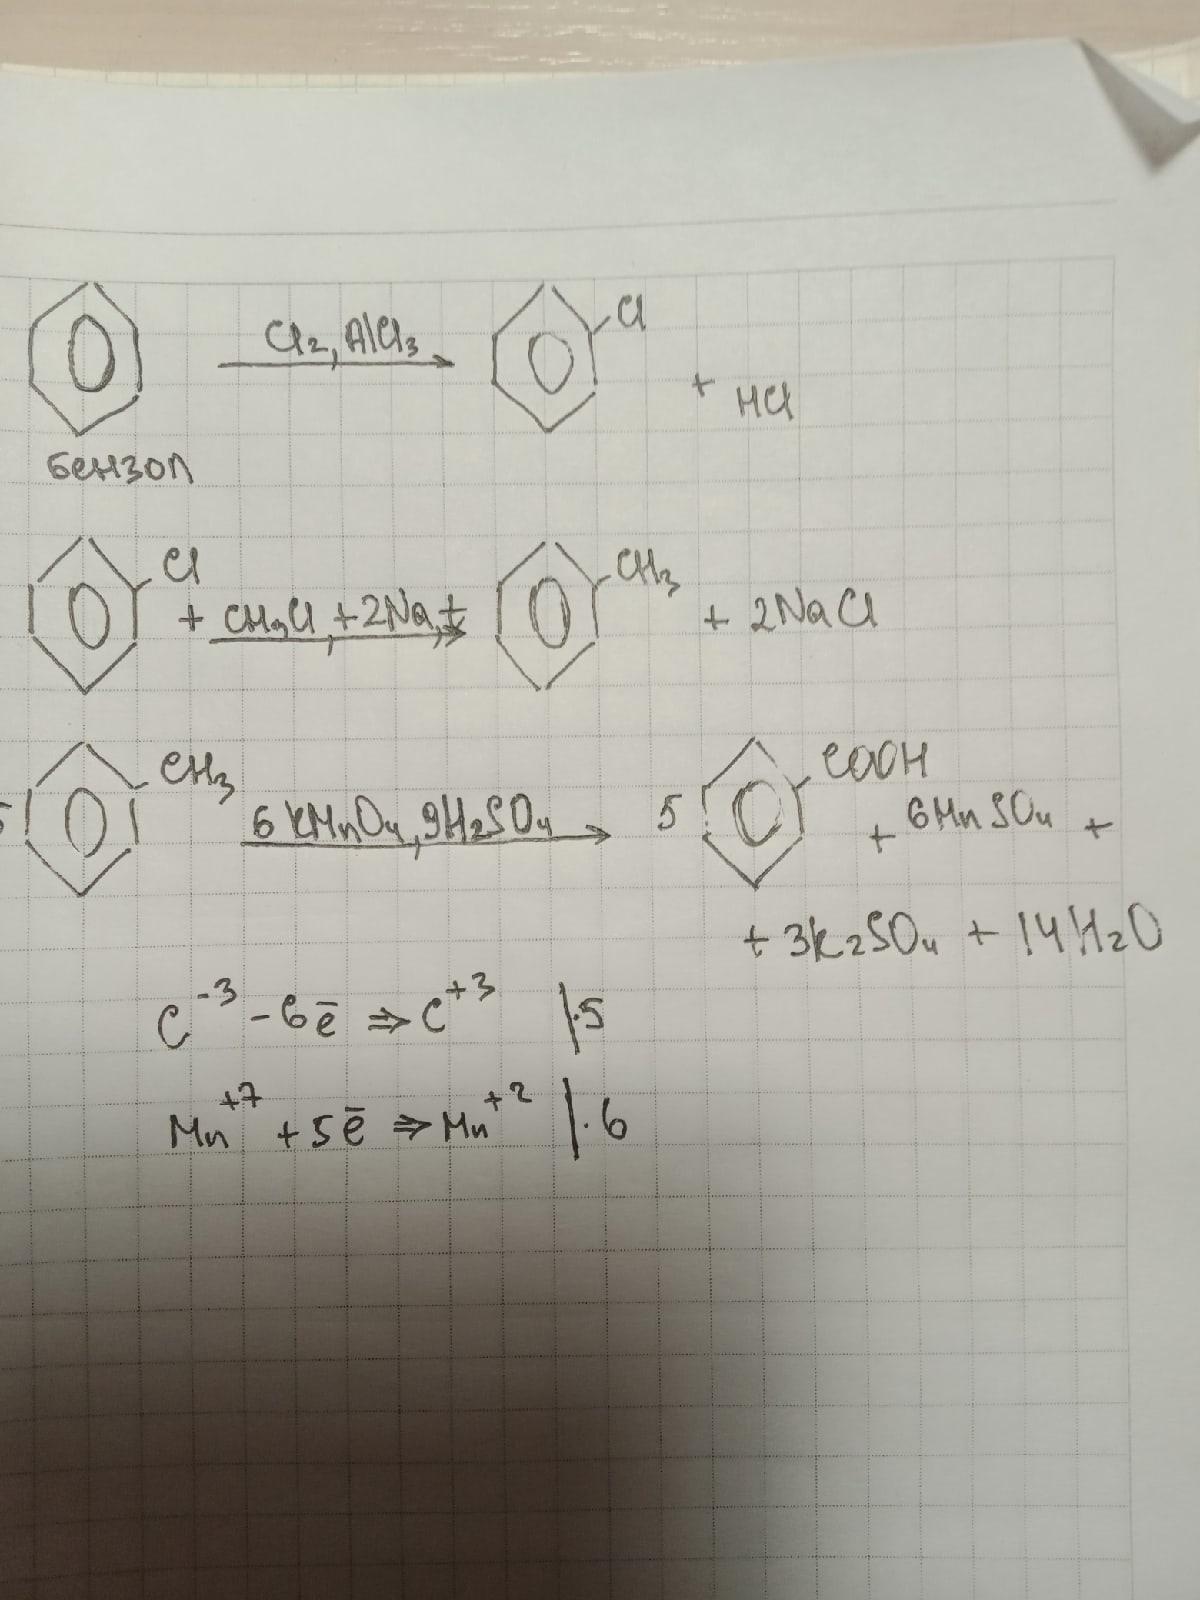 Cl₂, AlCl₃ Cl + HCl
бензол
Cl + CH₃Cl, +2Na, t CH₃ + 2NaCl
5 CH₃ 6 KMnO₄, 9H₂SO₄ 5 COOH + 6MnSO₄ +
+ 3K₂SO₄ + 14H₂O
C⁻³ - 6ē ⇒ C⁺³ |·5
Mn⁺⁷ + 5ē ⇒ Mn⁺² |·6